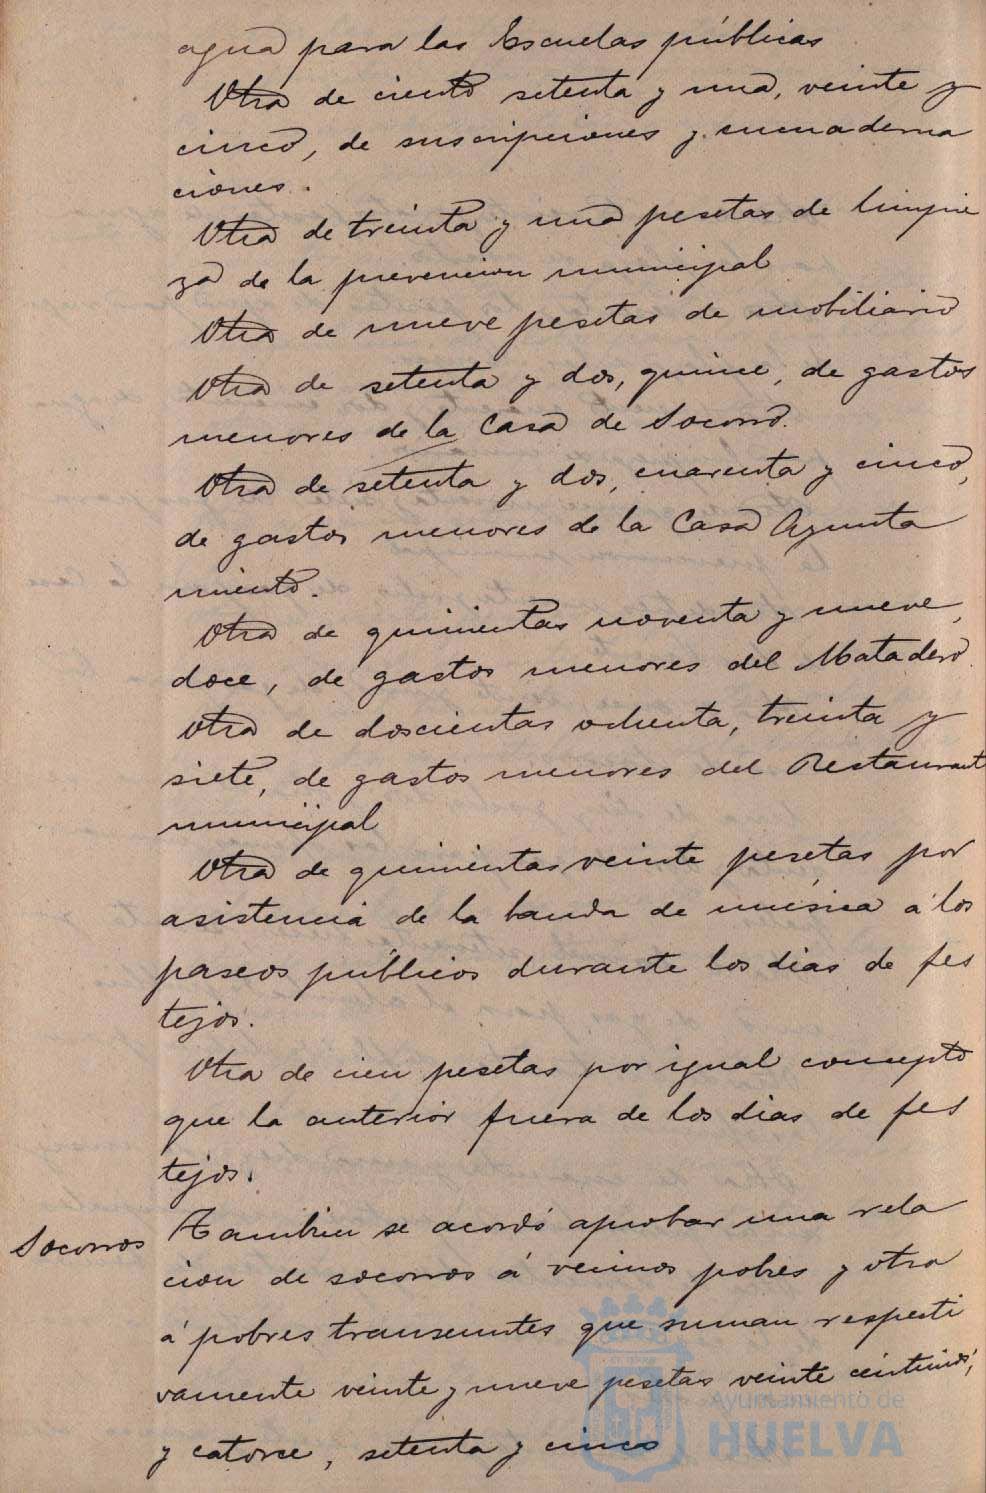 agua para las Escuelas públicas
Otra de ciento setenta y una, veinte y
cinco, de suscripciones y encuaderna
ciones.
Otra de treinta y una pesetas de limpie
za de la prevencion municipal
Otra de nueve pesetas de mobiliario
Otra de setenta y dos, quince, de gastos
menores de la Casa de Socorro.
Otra de setenta y dos, cuarenta y cinco,
de gastos menores de la Casa Ayunta
miento.
Otra de quinientas noventa y nueve,
doce, de gastos menores del Matadero.
Otra de doscientas ochenta, treinta y
siete, de gastos menores del Restaurant
municipal
Otra de quinientas veinte pesetas por
asistencia de la banda de música á los
paseos públicos durante los dias de fes
tejos.
Otra de cien pesetas por igual concepto
que la anterior fuera de los dias de fes
tejos.
Socorros
Tambien se acordó aprobar una rela
cion de socorros á vecinos pobres y otra
á pobres transeuntes que suman respecti
vamente veinte y nueve pesetas veinte centimos,
y catorce, setenta y cinco
Ayuntamiento de
HUELVA